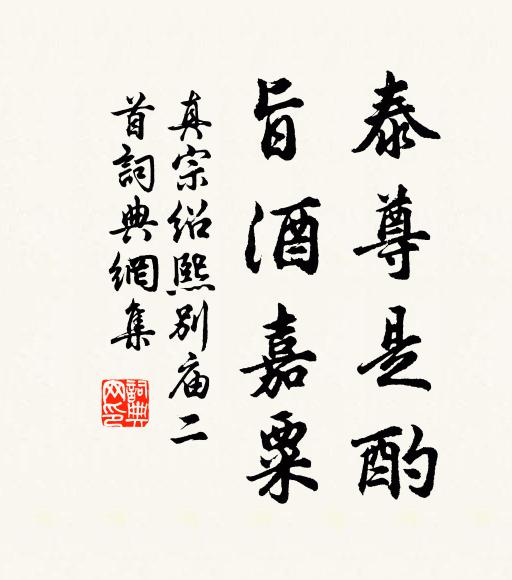 泰尊是酌
旨酒嘉粟
真宗绍熙别庙二
首詞典網集
詞典
网印